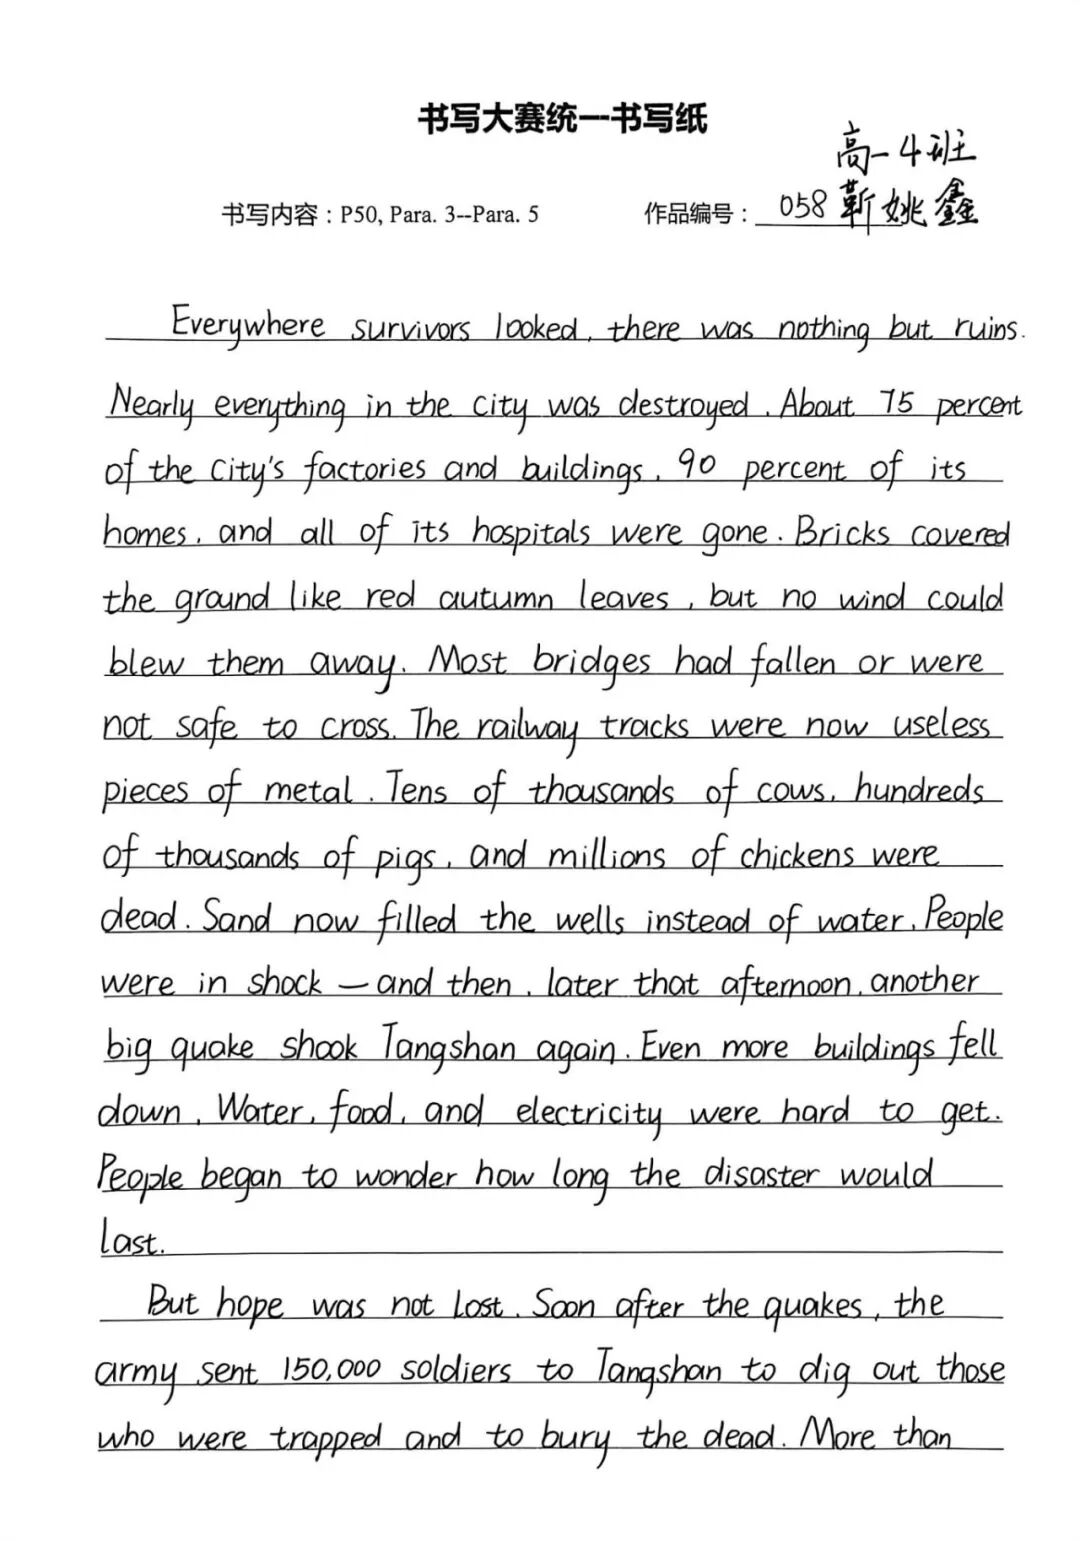 书写大赛统一书写纸
高一4班
书写内容：P50, Para. 3--Para. 5
作品编号：058靳姚鑫
Everywhere survivors looked, there was nothing but ruins.
Nearly everything in the city was destroyed. About 75 percent
of the city's factories and buildings, 90 percent of its
homes, and all of its hospitals were gone. Bricks covered
the ground like red autumn leaves, but no wind could
blew them away. Most bridges had fallen or were
not safe to cross. The railway tracks were now useless
pieces of metal. Tens of thousands of cows, hundreds
of thousands of pigs, and millions of chickens were
dead. Sand now filled the wells instead of water. People
were in shock — and then, later that afternoon, another
big quake shook Tangshan again. Even more buildings fell
down. Water, food, and electricity were hard to get.
People began to wonder how long the disaster would
last.
But hope was not lost. Soon after the quakes, the
army sent 150,000 soldiers to Tangshan to dig out those
who were trapped and to bury the dead. More than